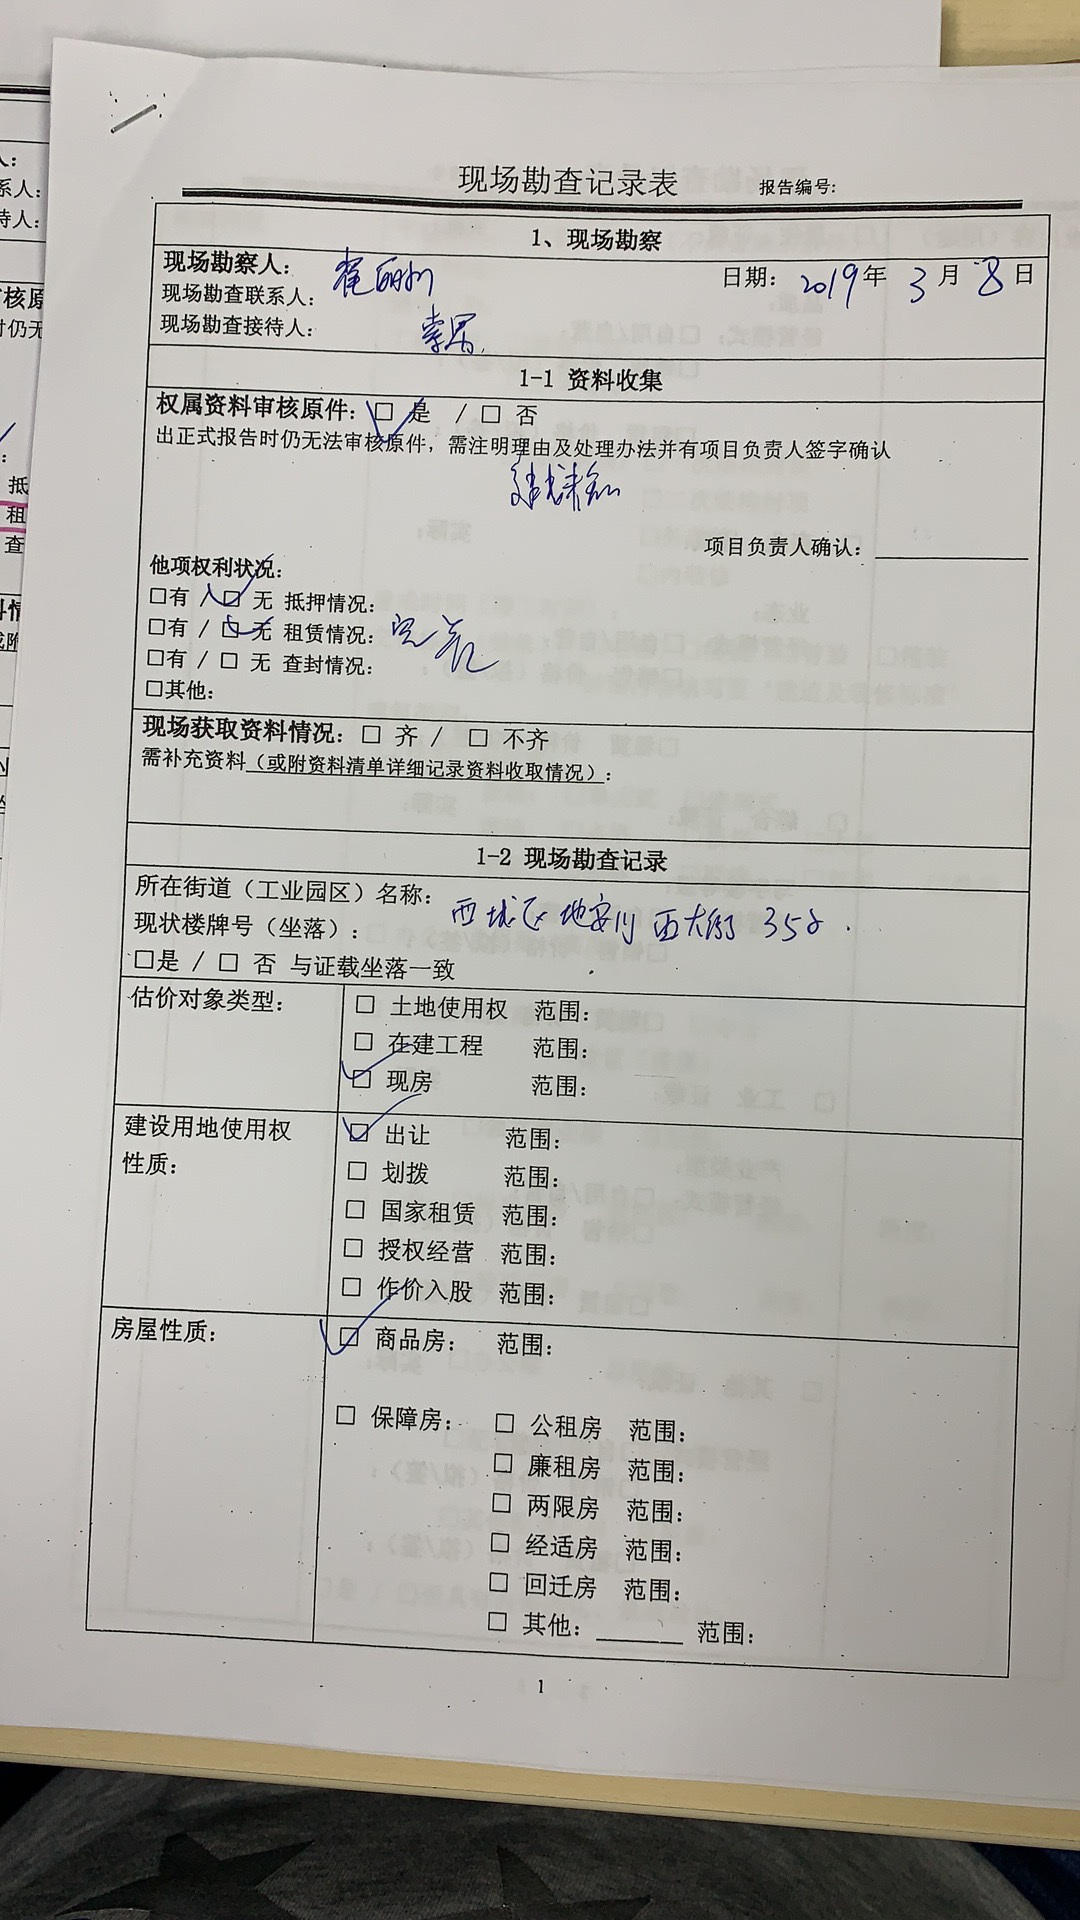 现场勘查记录表 报告编号:
1、现场勘察
现场勘察人: 日期: 2019年 3月 8日
现场勘查联系人:
现场勘查接待人:
1-1 资料收集
权属资料审核原件: □ 是 / □ 否
出正式报告时仍无法审核原件, 需注明理由及处理办法并有项目负责人签字确认
项目负责人确认:
他项权利状况:
□有 / □ 无 抵押情况:
□有 / □ 无 租赁情况:
□有 / □ 无 查封情况:
□其他:
现场获取资料情况: □ 齐 / □ 不齐
需补充资料(或附资料清单详细记录资料收取情况):
1-2 现场勘查记录
所在街道(工业园区)名称: 西城区地安门西大街
现状楼牌号(坐落):
□是 / □ 否 与证载坐落一致
估价对象类型: □ 土地使用权 范围:
□ 在建工程 范围:
□ 现房 范围:
建设用地使用权 □ 出让 范围:
性质: □ 划拨 范围:
□ 国家租赁 范围:
□ 授权经营 范围:
□ 作价入股 范围:
房屋性质: □ 商品房: 范围:
□ 保障房: □ 公租房 范围:
□ 廉租房 范围:
□ 两限房 范围:
□ 经适房 范围:
□ 回迁房 范围:
□ 其他:______ 范围:
1